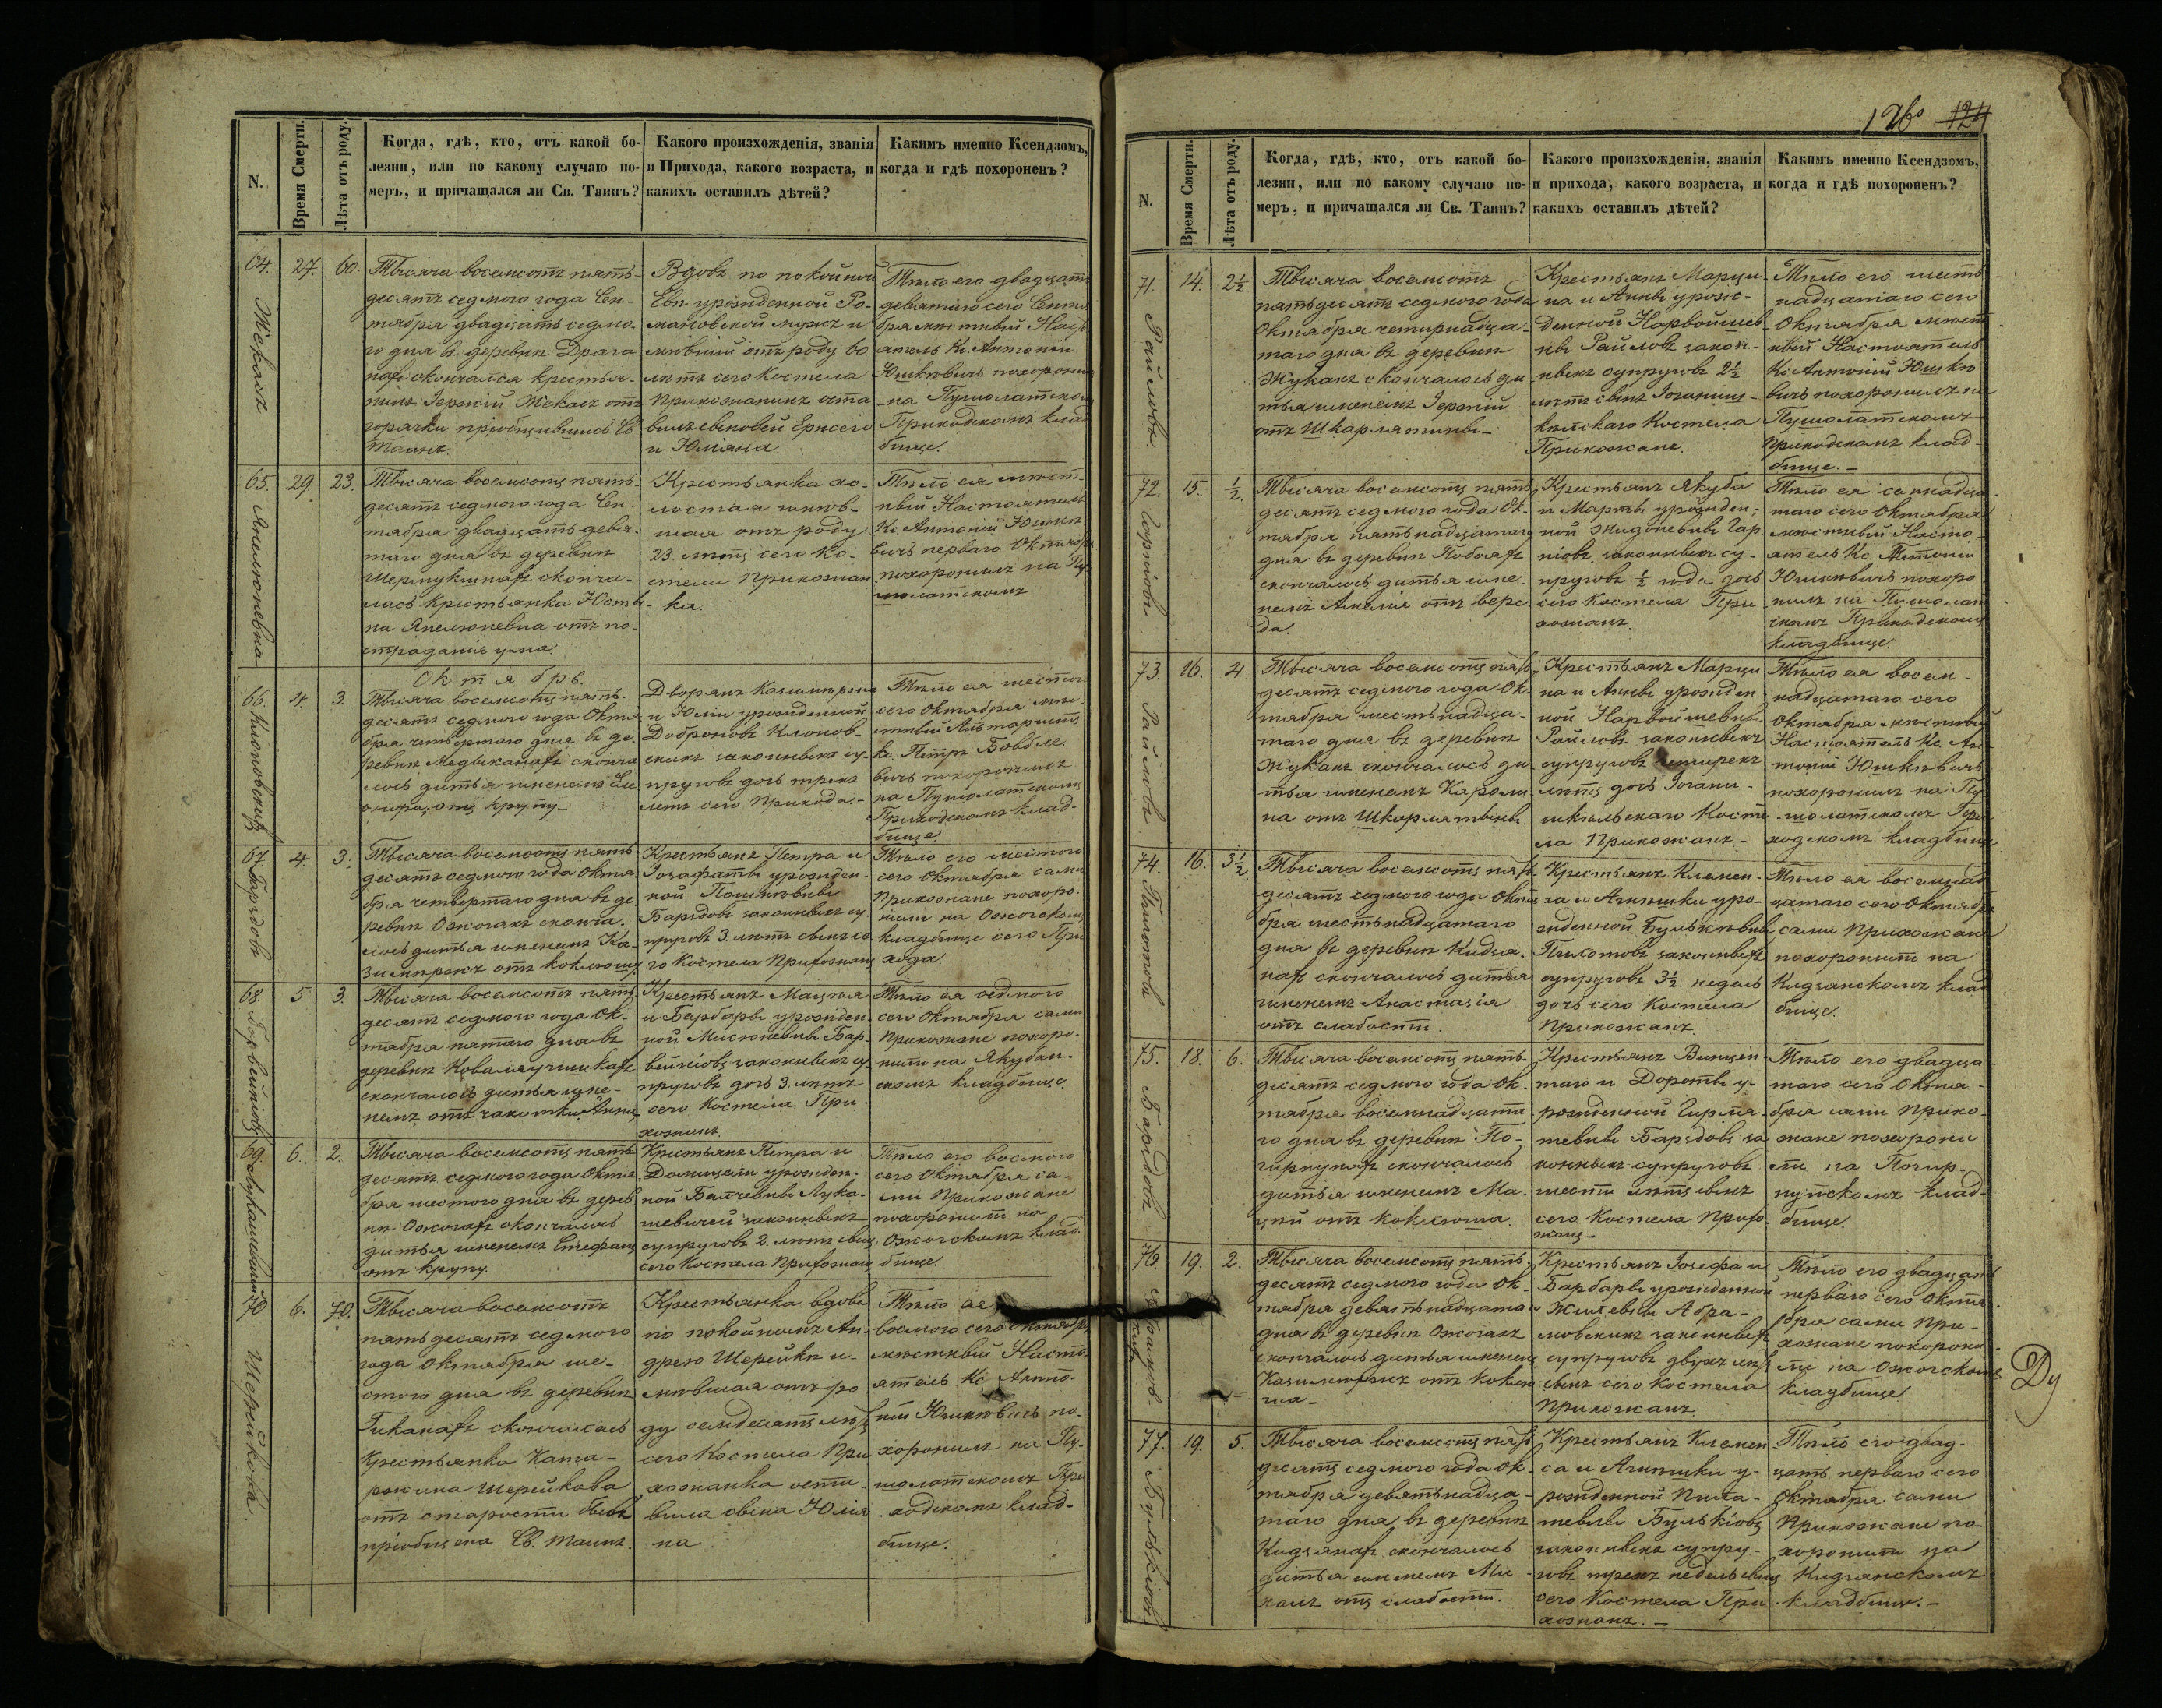 N.
Время Смерти.
Лѣта отъ роду.
Когда, гдѣ, кто, отъ какой бо-
лезни, или по какому случаю по-
меръ, и причащался ли Св. Таинъ?
Какого произхожденія, званія
и Прихода, какого возраста, и
какихъ оставилъ дѣтей?
Какимъ именно Ксендзомъ,
когда и гдѣ похороненъ?
64.
27.
60.
Жекасъ
Тысяча восемсотъ пять-
десятъ седмого года Сен-
тября двадцать седмо-
го дня въ деревни Драга
нахъ скончался крестья-
нинъ Іержій Жекасъ отъ
горячки пріобщившись Св.
Таинъ.
Вдовъ по покойной
Еви урожденной Ро-
мановской мужъ и
мѣвшій отъ роду 60.
лѣтъ сего Костела
Прихожанинъ оста
вилъ сыновей
и Юліяна.
Тѣло его двадцать
девятаго сего Сентя
бря мѣстный Насто
ятель Кс. Антоній
Юшкѣвичъ похоронилъ
на Пушолатском
Приходскомъ клад
бище.
65.
29.
23.
Янелюневна
Тысяча восемсотъ пять-
десятъ седмого года Сен-
тября двадцать девя-
таго дня въ деревни
Шермукшнахъ сконча-
лась крестьянка Юсты-
на Янелюневна отъ по-
страданія ума.
Крестьянка хо-
лостая имѣв-
шая отъ роду
23. лѣтъ сего Ко-
стела Прихожан
ка.
Тѣло ея мѣст-
ный Настоятель
Кс. Антоній Юшкѣ
вичъ перваго Октября
похоронилъ на Пу
шолатскомъ
Октябрь.
66.
4.
3.
Клоновскихъ
Тысяча восемсотъ пять-
десятъ седмого года Октя
бря четвертого дня въ де-
ревни Медыканахъ сконча
лось дитья именемъ Еле
онора, отъ крупу.
Дворянъ Казимѣржа
и Юліи урожденной
Доброновъ Клонов-
скихъ законныхъ су-
пруговъ дочъ трехъ
лѣтъ сего Прихода.-
Тѣло ея шестого
сего Октября мѣ-
стный Альтариста
Кс. Петръ Бовбле
вичъ похоронилъ
на Пушолатскомъ
Приходскомъ клад-
бище
67.
4.
3.
Баріздовъ
Тысяча восемсотъ пять
десятъ седмого года Октя
бря четвертаго дня въ де-
ревни Ожогахъ сконча-
лось дитья именемъ Ка-
зимѣржъ отъ коклюшу.
Крестьянъ Петра и
Іозафаты урожден-
ной Пошкѣвны
Баріздовъ законныхъ су-
пруговъ 3. лѣтъ сынъ се
го Костела Прихожанъ
Тѣло его шестого
сего Октября сами
Прихожане похоро-
нили на Ожогском
кладбище сего При
хода.
68.
5.
3.
Барвейнісовъ
Тысяча восемсотъ пять
десятъ седмого года Ок-
тября пятаго дня въ
деревни Ковалаучишкахъ
скончалось дитья име-
немъ, отъ Анна
Крестьянъ Мацѣя
и Барбары урожден
ной Мисюневны Бар-
вейнісовъ законныхъ су
пруговъ дочъ 3. лѣтъ
сего Костела При
хожанъ.
Тѣло ея седмого
сего Октября сами
Прихожане похоро-
нили на Якубан-
скомъ кладбище.
69.
6.
2.
Тысяча восемсотъ пять
десятъ седмого года Октя
бря шестого дня въ дерев
ни Ожогахъ скончалось
дитья именемъ Стефанъ
отъ крупу.
Крестьянъ Петра и
Домицели урожден-
ной Балчевны Лука-
шевичей законныхъ
супруговъ 2. лѣтъ сынъ
сего Костела Прихожанъ
Тѣло его восмого
сего Октября са-
ми Прихожане
похоронили на
Ожогскомъ клад
бище.
70.
6.
70.
Шерейкова.
Тысяча восемсотъ
пятьдесятъ седмого
года Октября ше-
стого дня въ деревни
Гиканахъ скончалась
Крестьянка Ката-
ржина Шерейкова
отъ старости бывъ
пріобщена Св. Таинъ.
Крестьянка вдова
по покойномъ Ан-
дрею Шерейкѣ и-
мѣвшая отъ ро
ду семдесятъ лѣтъ
сего Костела При
хожанка оста-
вила сына Юлія
на.
Тѣло ея
восмого сего Октября
мѣстный Насто
ятель Кс. Анто-
ній Юшкѣвичъ по-
хоронилъ на Пу-
шолатскомъ При
ходскомъ клад-
бище.
126
124
N.
Время Смерти.
Лѣта отъ роду.
Когда, гдѣ, кто, отъ какой бо-
лезни, или по какому случаю по-
меръ, и причащался ли Св. Таинъ?
Какого произхожденія, званія
и прихода, какого возраста, и
какихъ оставилъ дѣтей?
Какимъ именно Ксендзомъ,
когда и гдѣ похороненъ?
71.
14.
2½.
Райловъ
Тысяча восемсотъ
пятьдесятъ седмого года
Октября четырнадца-
таго дня въ деревни
Жукахъ скончалось ди
тья именемъ Іержій
отъ Шкарлятины-
Крестьянъ Марци
на и Анны урож-
денной Нарвойшев
ны Райловъ закон-
ныхъ супруговъ 2½
лѣтъ сынъ Іоганиш-
кѣлскаго Костела
Прихожанъ.
Тѣло его шесть
надцатаго сего
Октября мѣст
ный Настоятель
Кс. Антоній Юшкѣ
вичъ похоронилъ на
Пушолатскомъ
Приходскомъ клад-
бище.-
72.
15.
½.
Тысяча восемсотъ пять
десятъ седмого года Ок-
тября пятьнадцатаго
дня въ деревни Побояхъ
скончалось дитья име-
немъ Анелія отъ вере-
да.
Крестьянъ Якуба
и Марты урожден-
ной Жидоневны Гар
ніовъ законныхъ су-
пруговъ ½ года дочъ
сего Костела При
хожанъ.
Тѣло ея семнадца
таго сего Октября
мѣстный Насто-
ятель Кс. Антоній
Юшкѣвичъ похоро
нилъ на Пушолат
скомъ Приходскомъ
кладбище.
73.
16.
4.
Райловъ
Тысяча восемсотъ пять
десятъ седмого года Ок-
тября шестьнадца-
таго дня въ деревни
Жукахъ скончалось ди
тья именемъ Кароли
на отъ Шкарлятыны.
Крестьянъ Марци
на и Анны урожден
ной Нарвойшевны
Райловъ законныхъ
супруговъ четырехъ
лѣтъ дочъ Іогани-
шкѣльскаго Косте
ла Прихожанъ.-
Тѣло ея восем-
надцатаго сего
Октября мѣстный
Настоятель Кс. Ан-
тоній Юшкѣвичъ
похоронилъ на Пу
шолатскомъ При
ходскомъ кладбище
74.
16.
3½
Пилотовъ
Тысяча восемсотъ пять
десятъ седмого года Октя
бря шестьнадцатаго
дня въ деревни Кидзя-
нахъ скончалось дитья
именемъ Анастазія
отъ слабости.
Крестьянъ Клемен-
са и Агнѣшки уро-
жденной Булькѣвны
Пилотовъ законныхъ
супруговъ 3½. недель
дочъ сего Костела
Прихожанъ.
Тѣло ея восемнад
цатаго сего Октября
сами Прихожане
похоронили на
Кидзянскомъ клад
бище.
75.
18.
6.
Баріздовъ
Тысяча восемсотъ пять-
десятъ седмого года Ок-
тября восемнадцата
го дня въ деревни По-
гирнунахъ скончалось
дитья именемъ Ма-
цѣй отъ Коклюша.
Крестьянъ Винцен
таго и Дороты у-
рожденной Гирта-
невны Баріздовъ за
конныхъ супруговъ
шести лѣтъ сынъ
сего Костела Прихо
жанъ-
Тѣло его двадца
таго сего Октя-
бря сами прихо-
жане похорони
ли на Погир-
нунскомъ клад
бище.
76.
19.
2.
Тысяча восемсотъ пять
десятъ седмого года Ок-
тября девятьнадцатаго
дня въ деревни Ожогахъ
скончалось дитья именемъ
Казимѣржъ отъ Коклю
ша-
Крестьянъ Іозефа и
Барбары урожденной
Абра-
мовскихъ законныхъ
супруговъ двухъ лѣтъ
сынъ сего Костела
Прихожанъ
Тѣло его двадцать
перваго сего Октя-
бря сами При-
хожане похорони
ли на Ожогскомъ
кладбище
Ду
77.
19.
5.
Булькіовъ
Тысяча восемсотъ пять
десятъ седмого года Ок-
тября девятьнадца-
таго дня въ деревни
Кидзянахъ скончалось
дитья именемъ Ми-
халъ отъ слабости.
Крестьянъ Клемен
са и Агнѣшки у-
рожденной Пила-
тевны Булькіовъ
законныхъ супру-
говъ трехъ недель сынъ
сего Костела При
хожанъ.-
Тѣло его двад-
цать перваго сего
Октября сами
Прихожане по-
хоронили на
Кидзянскомъ
кладбище.-